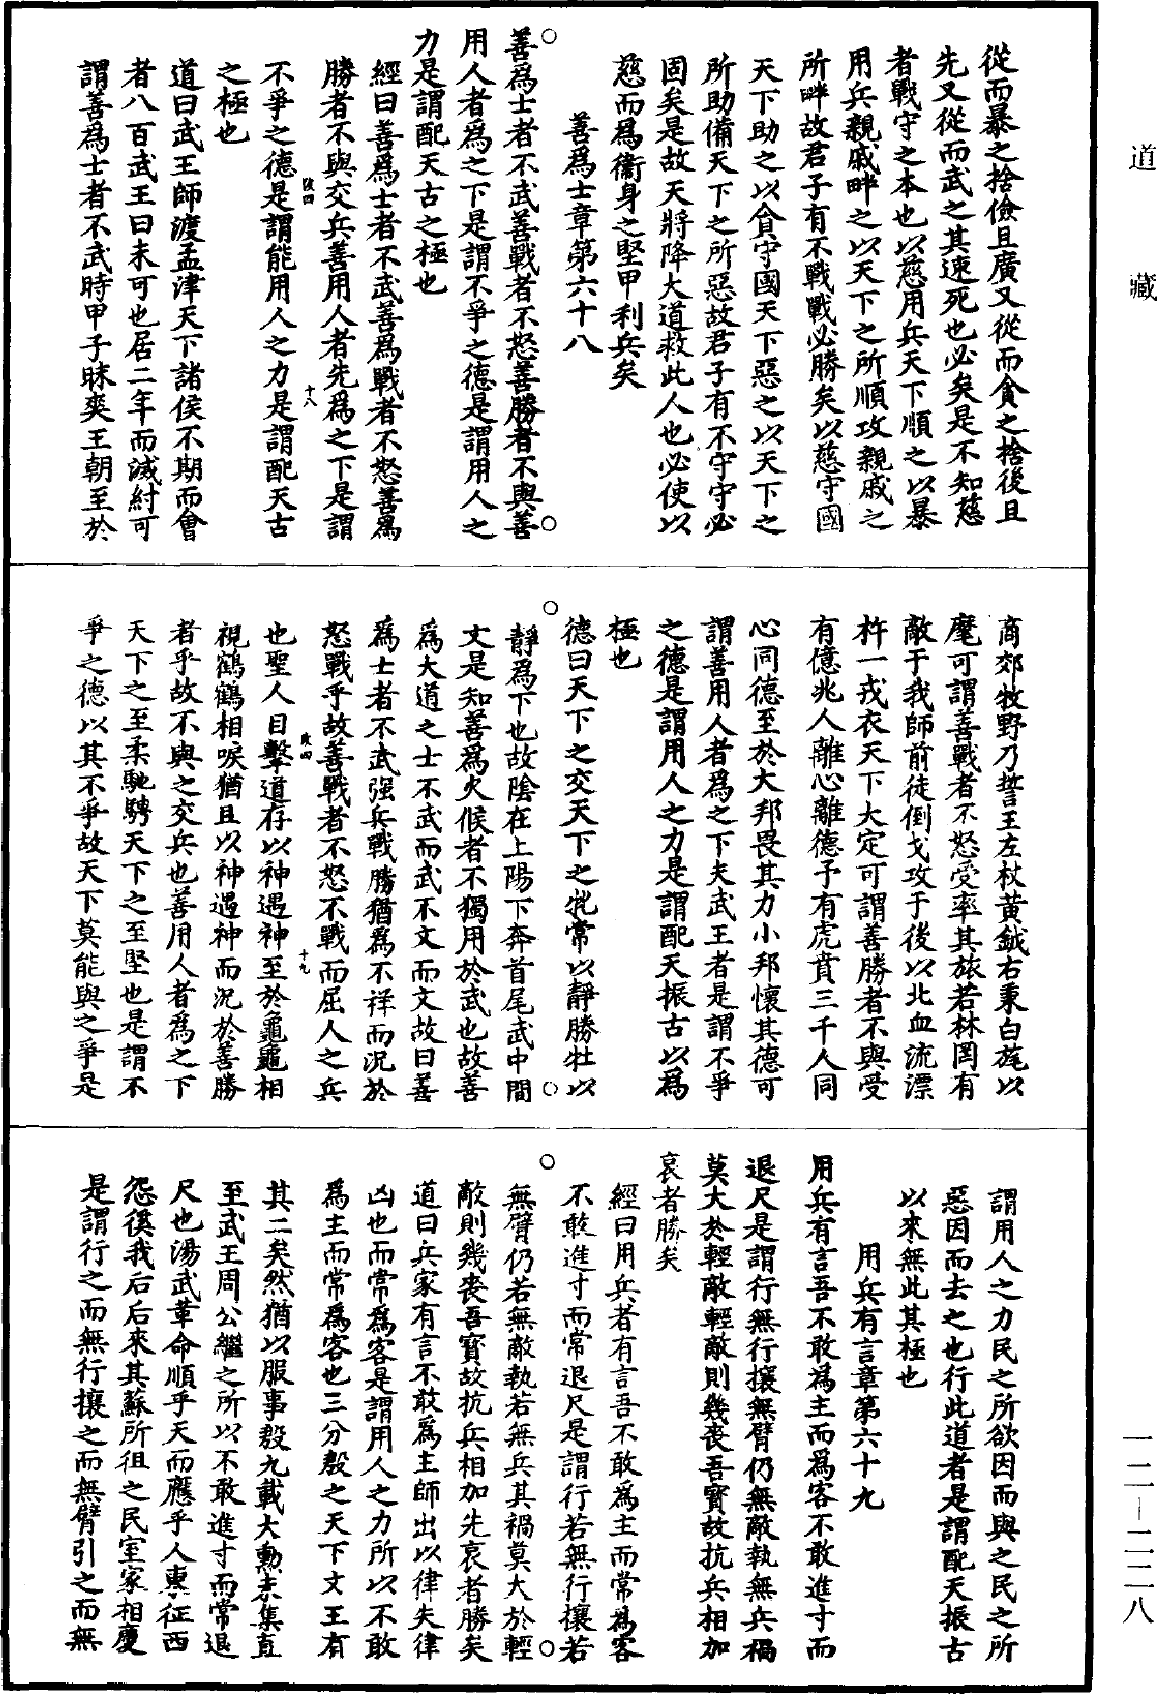 道藏
從而暴之捨儉且廣又從而貪之捨後且
先又從而武之其速死也必矣是不知慈
者戰守之本也以慈用兵天下順之以暴
用兵親戚畔之以天下之所順攻親戚之
所畔故君子有不戰戰必勝矣以慈守國
天下助之以貪守國天下惡之以天下之
所助備天下之所惡故君子有不守守必
固矣是故天將降大道救此人也必使以
慈而爲衞身之堅甲利兵矣
善爲士章第六十八
善爲士者不武善戰者不怒善勝者不與善
用人者爲之下是謂不爭之德是謂用人之
力是謂配天古之極也
經曰善爲士者不武善爲戰者不怒善爲
勝者不與交兵善用人者先爲之下是謂
改四 十八
不爭之德是謂能用人之力是謂配天古
之極也
道曰武王師渡孟津天下諸侯不期而會
者八百武王曰未可也居二年而滅紂可
謂善爲士者不武時甲子昧爽王朝至於
商郊牧野乃誓王左杖黃鉞右秉白旄以
麾可謂善戰者不怒受率其旅若林罔有
敵于我師前徒倒戈攻于後以北血流漂
杵一戎衣天下大定可謂善勝者不與受
有億兆人離心離德予有虎賁三千人同
心同德至於大邦畏其力小邦懷其德可
謂善用人者爲之下夫武王者是謂不爭
之德是謂用人之力是謂配天振古以爲
極也
德曰天下之交天下之牝常以靜勝牡以
靜爲下也故陰在上陽下奔首尾武中間
文是知善爲火候者不獨用於武也故善
爲大道之士不武而武不文而文故曰善
爲士者不武强兵戰勝猶爲不祥而況於
怒戰乎故善戰者不怒不戰而屈人之兵
改四 十九
也聖人目擊道存以神遇神至於龜龜相
視鶴鶴相唳猶且以神遇神而況於善勝
者乎故不與之交兵也善用人者爲之下
天下之至柔馳騁天下之至堅也是謂不
爭之德以其不爭故天下莫能與之爭是
謂用人之力民之所欲因而與之民之所
惡因而去之也行此道者是謂配天振古
以來無此其極也
用兵有言章第六十九
用兵有言吾不敢爲主而爲客不敢進寸而
退尺是謂行無行攘無臂仍無敵執無兵禍
莫大於輕敵輕敵則幾喪吾寶故抗兵相加
哀者勝矣
經曰用兵者有言吾不敢爲主而常爲客
不敢進寸而常退尺是謂行若無行攘若
無臂仍若無敵執若無兵其禍莫大於輕
敵則幾喪吾寶故抗兵相加先哀者勝矣
道曰兵家有言不敢爲主師出以律失律
凶也而常爲客是謂用人之力所以不敢
爲主而常爲客也三分殷之天下文王有
其二矣然猶以服事殷九載大勳未集直
至武王周公繼之所以不敢進寸而常退
尺也湯武革命順乎天而應乎人東征西
怨徯我后后來其蘇所徂之民室家相慶
是謂行之而無行攘之而無臂引之而無
一二—二二八